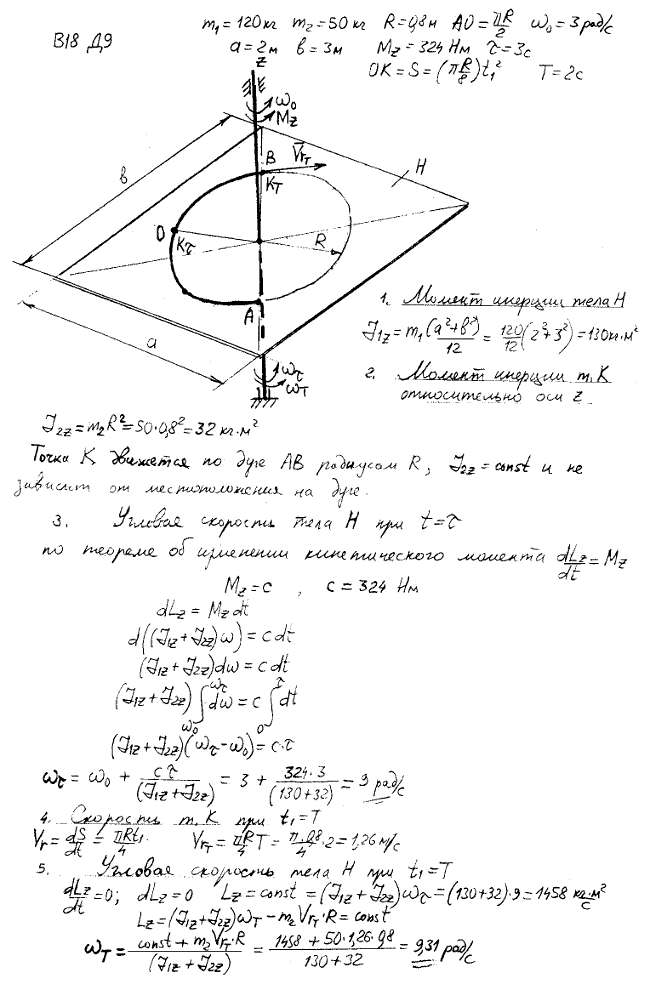 m₁ = 120 кг m₂ = 50 кг R = 0,8 м AO = πR/2 ω₀ = 3 рад/с
В18 Д9
a = 2 м в = 3 м M_z = 324 Нм τ = 3 с
OK = S = (πR/8)t₁² T = 2 с
z
ω₀
M_z
B
V̄_rт
K_T
H
в
O
K_τ
R
A
a
ω_τ
ω_T
1. Момент инерции тела H
J₁z = m₁(a²+в²)/12 = 120/12(2²+3²) = 130 кг·м²
2. Момент инерции т. K
относительно оси z
J₂z = m₂R² = 50·0,8² = 32 кг·м²
Точка K движется по дуге AB радиусом R, J₂z = const и не
зависит от местоположения на дуге.
3. Угловая скорость тела H при t = τ
по теореме об изменении кинетического момента dLz/dt = Mz
Mz = c , c = 324 Нм
dLz = Mz dt
d((J₁z + J₂z)ω) = c dt
(J₁z + J₂z)dω = c dt
(J₁z + J₂z)∫_ω₀^ω_τ dω = c∫₀^τ dt
(J₁z + J₂z)(ω_τ - ω₀) = c·τ
ω_τ = ω₀ + cτ/(J₁z + J₂z) = 3 + 324·3/(130+32) = 9 рад/с
4. Скорость т. K при t₁ = T
V_r = dS/dt = πRt₁/4 V_rт = πR/4 T = π·0,8/4·2 = 1,26 м/с
5. Угловая скорость тела H при t₁ = T
dLz/dt = 0; dLz = 0 Lz = const = (J₁z + J₂z)ω_τ = (130+32)·9 = 1458 кг·м²/с
Lz = (J₁z + J₂z)ω_T - m₂V_rт·R = const
ω_T = const + m₂V_rт·R/(J₁z + J₂z) = 1458 + 50·1,26·0,8/130+32 = 9,31 рад/с